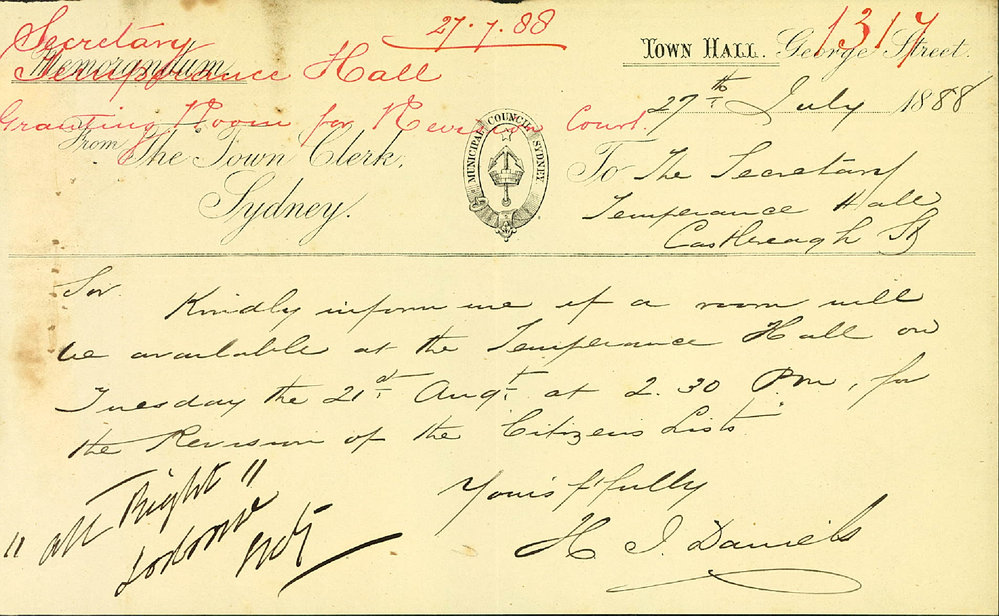 Secretary
Temperance Hall
Granting Room for Revision Court.
27.7.88
1317
Memorandum
From The Town Clerk,
Sydney.
MUNICIPAL COUNCIL SYDNEY
TOWN HALL. George Street.
27th July 1888
To The Secretary
Temperance Hall
Castlereagh St
Sir
Kindly inform me if a room will
be available at the Temperance Hall on
Tuesday the 21st Augt. at 2.30 Pm, for
the Revision of the Citizens Lists
Yours f'fully
H J. Daniels
"all Right"